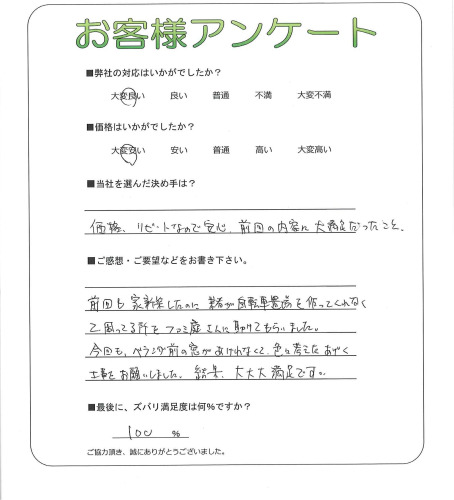 お客様アンケート
■弊社の対応はいかがでしたか？
大変良い 良い 普通 不満 大変不満
■価格はいかがでしたか？
大変安い 安い 普通 高い 大変高い
■当社を選んだ決め手は？
価格、リピートなので安心、前回の内容に大満足だったこと。
■ご感想・ご要望などをお書き下さい。
前回も家新築したのに 自転車置場を作ってくれなく
て困ってる所をファミ庭さんに助けてもらいました。
今回も、ベランダ前の窓があけれなくて、色々考えたあげく
工事をお願いしました。結果、大大大満足です。
■最後に、ズバリ満足度は何％ですか？
100 ％
ご協力頂き、誠にありがとうございました。